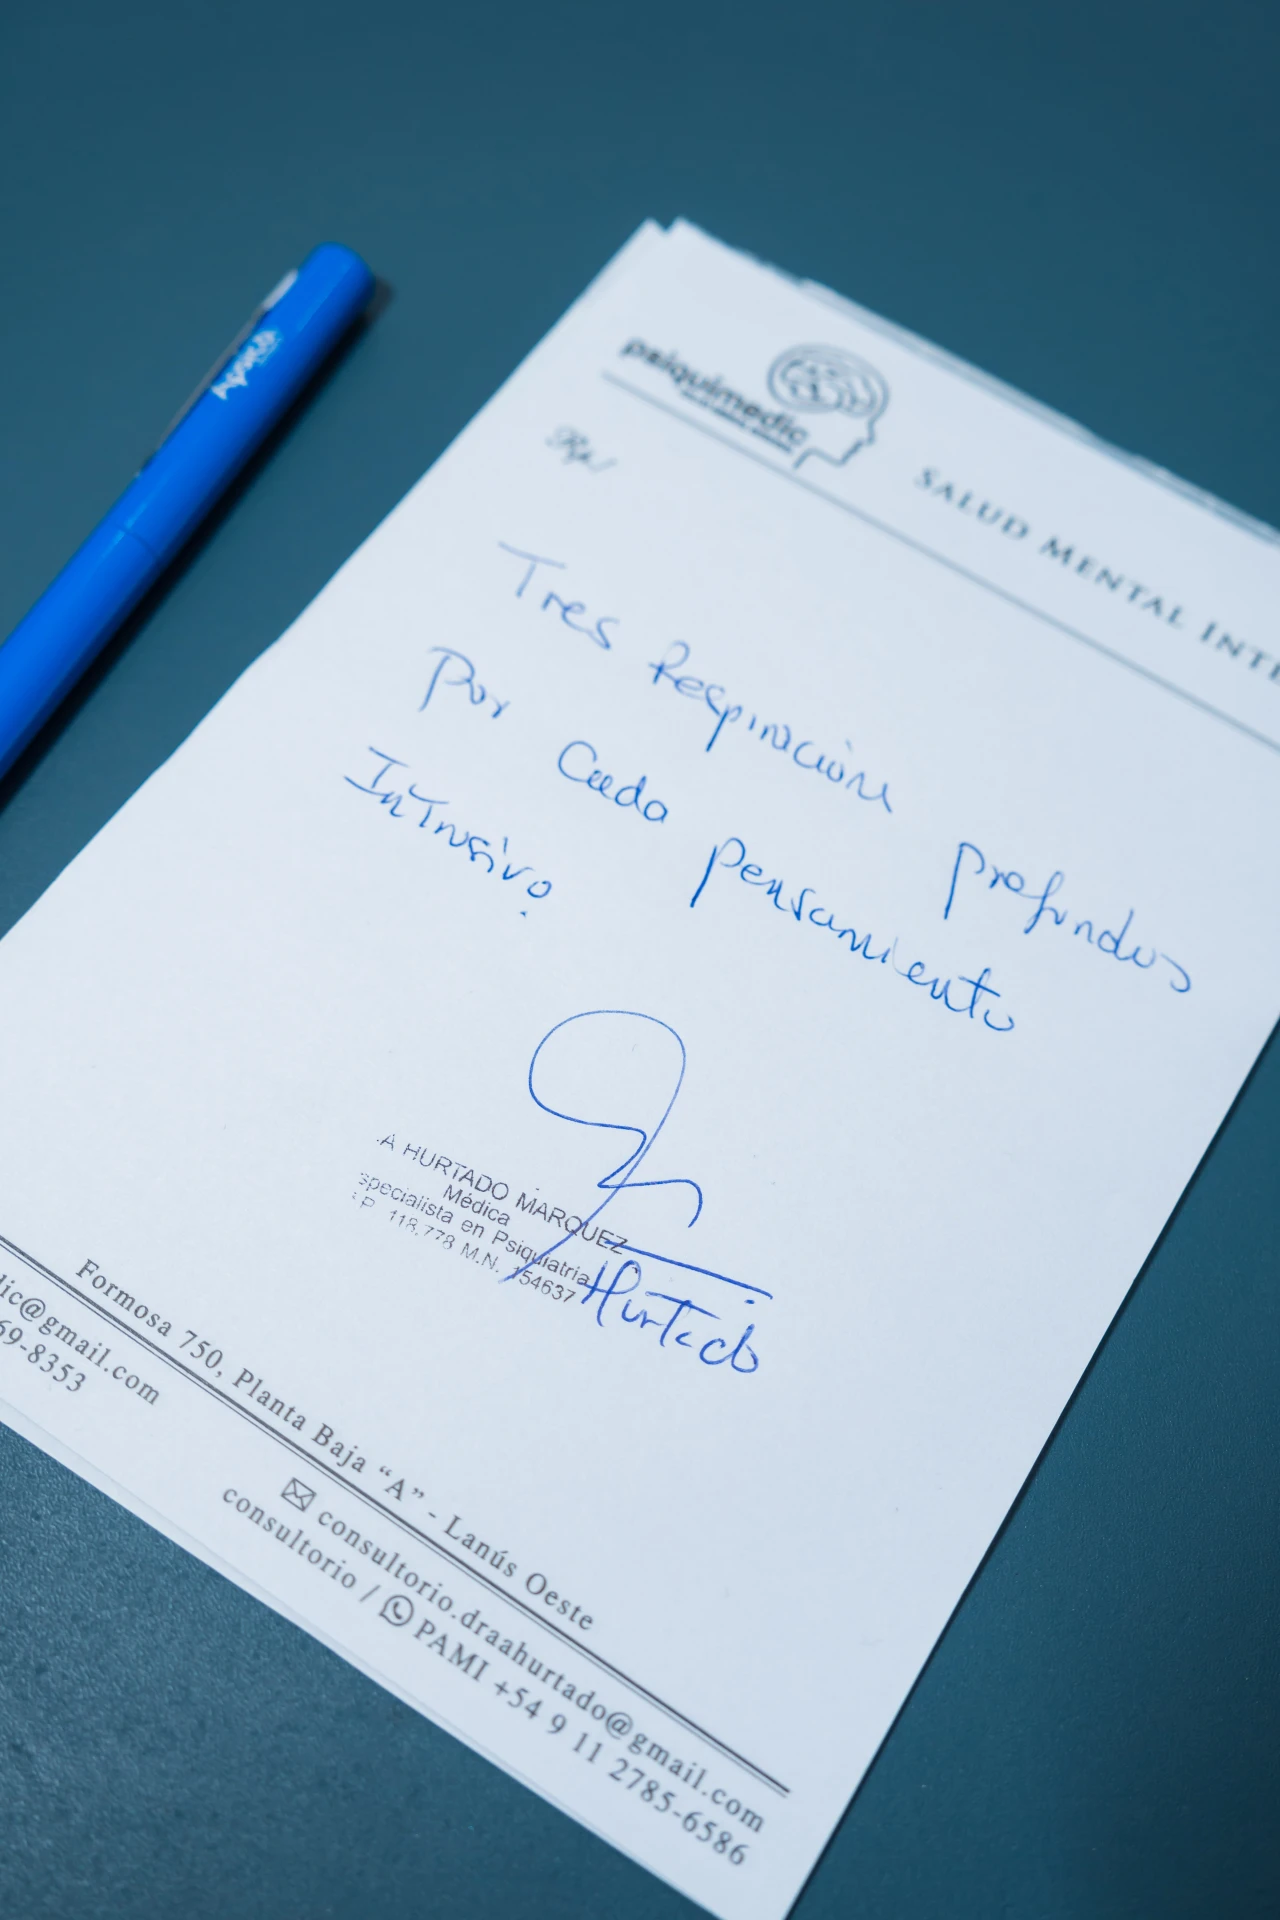 Apolo
psiquimedic
SALUD MENTAL INTE
Rp/
Tres Respiracione profundas
por Cada pensamiento
Intrusivo.
.A HURTADO MARQUEZ
Médica
specialista en Psiquiatria
.P. 118.778 M.N. 154637
Hurtado
Formosa 750, Planta Baja “A” - Lanús Oeste
dic@gmail.com
69-8353
consultorio.draahurtado@gmail.com
consultorio / PAMI +54 9 11 2785-6586